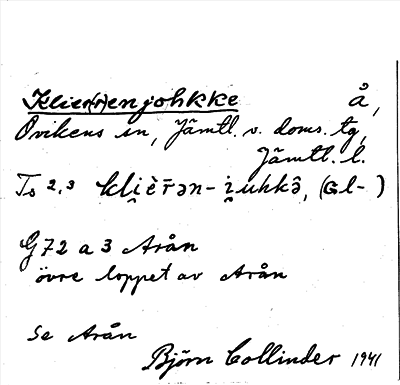 Klier(r)enjohkke å,
Ovikens sn, Jämtl. v. doms. tg,
Jämtl. l.
Ts 2,3 kli̯èr̄ən-i̯uhkə̑, (Gl-)
G72 a 3 Arån
övre loppet av Arån
Se Arån
Björn Collinder 1941